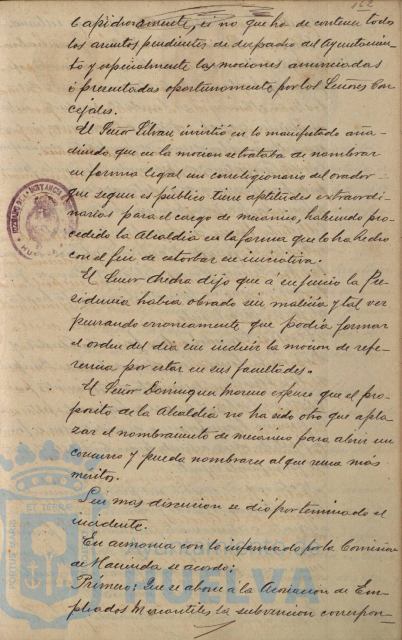 162
capidiosamente, si no que ha de contener todos
los asuntos pendientes de despacho del Ayuntamien-
to y especialmente las mociones anunciadas
ó presentadas oportunamente por los Señores Con-
cejales.
El Señor insistió en lo manifestado aña-
diendo que en la mocion se trataba de nombrar
en forma legal un correligionario del orador
que segun es público tiene aptitudes extraordi-
narias para el cargo de mecánico, habiendo pro-
cedido la Alcaldia en la forma que lo ha hecho
con el fin de estorbar su iniciativa.
El Señor dijo que á su juicio la Pre-
sidencia habia obrado sin malicia y tal vez
pensando erroneamente que podia formar
el orden del dia sin incluir la mocion de refe-
rencia por estar en sus facultades.
El Señor Dominguez Moreno expuso que el pro-
posito de la Alcaldia no ha sido otro que apla-
zar el nombramiento de mecánico para abrir un
concurso y pueda nombrarse al que reuna más
meritos.
Sin mas discusion se dió por terminado el
incidente.
En armonia con lo informado por la Comision
de Hacienda se acordo:
Primero: Que se abone á la Asociacion de Em-
pleados Mercantiles la subvencion correspon-
PORTUS MARIS ET TERRAE
HUELVA